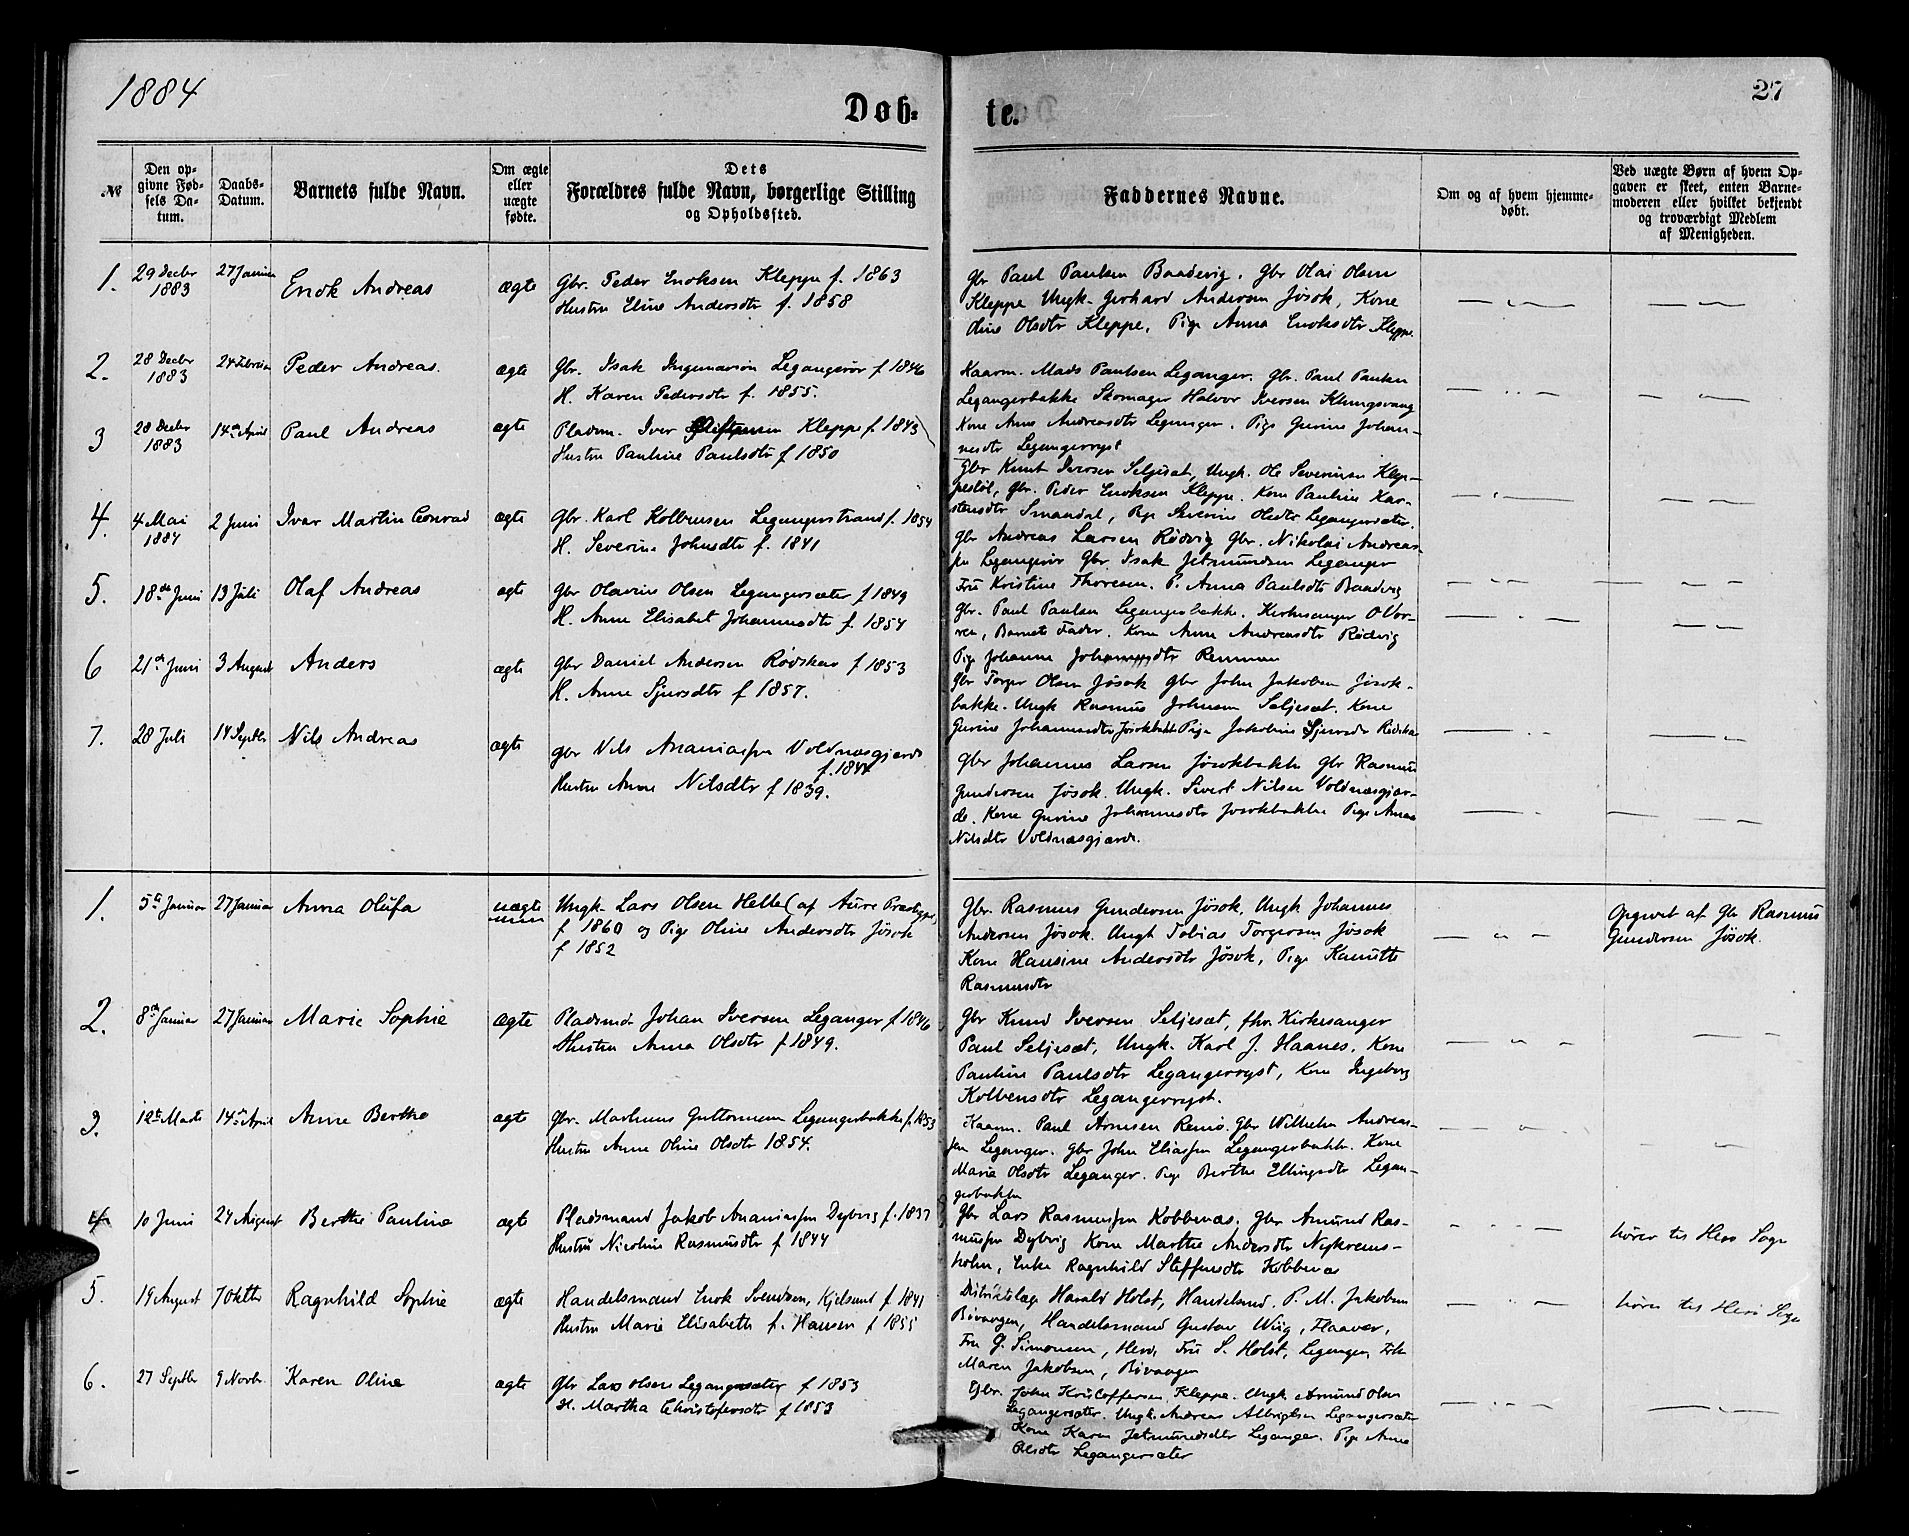 1884
27
Døb-
te.
№
Den op-
givne Fød-
sels Da-
tum.
Daabs-
Datum.
Barnets fulde Navn.
Om ægte
eller
uægte
fødte.
Dets
Forældres fulde Navn, borgerlige Stilling
og Opholdssted.
Faddernes Navne.
Om og af hvem hjemme-
døbt.
Ved uægte Børn af hvem Op-
gaven er skeet, enten Barne-
moderen eller hvilket bekjendt
og troværdigt Medlem
af Menigheden.
1.
29 Decbr
1883
27 Januar
Enok Andreas
ægte
Gbr. Peder Enoksen Kleppe f. 1863
Hustru Eline Andersdtr f. 1858
Gbr Paul Paulsen Baadsvig. Gbr Olai Olsen
Kleppe Ungk. Gerhard Andersen Jøsok, Kone
Oline Olsdtr Kleppe, Pige Anna Enoksdtr Kleppe
2.
28 Decbr
1883
24 Februar
Peder Andreas.
ægte
Gbr. Isak Ingemarson Legangerør f 1846
H. Karen Pedersdtr f. 1855.
Kaarm. Mads Paulsen Leganger. Gbr. Paul Paulsen
Legangerbakke Skomager Halvor Iversen Klungsvaag
Kone Anne Andreasdtr Leganger. Pige Gurine Johan-
nesdtr Legangerryst
3
28 Decbr
1883
14de April
Paul Andreas
ægte
Pladsm. Iver Kleppe f. 1843
Hustru Pauline Paulsdtr f 1850
Gbr Knut Iversen Seljesæt, Ungk. Ole Severinsen Klep-
pestøl, Gbr. Peder Enoksen Kleppe. Kone Pauline Kar-
stensdtr Smaadal, Pige Severine Olsdtr Legangersæter.
4.
4 Mai
1884
2 Juni
Ivar Martin Conrad
ægte
Gbr. Karl Kolbensen Legangerstrand f. 1854
H. Severine Johnsdtr f. 1841
Gbr Andreas Larsen Rødvig Gbr. Nikolai Andreas-
sen Legangerør Gbr. Isak Jetmundsen Leganger
Fru Kristine Thoresen. P. Anna Paulsdtr Baadsvig
5.
18de Juni
13 Juli
Olaf Andreas
ægte
Gbr Olavius Olsen Legangersæter f 1849
H. Anne Elisabet Johannesdtr f. 1854
Gbr. Paul Paulsen Legangerbakke. Kirkesanger O Vor-
ren, Barnets Fader. Kone Anne Andreasdtr Rødvig
Pige Johanne Johannesdtr Remman
6
21de Juni
3 August
Anders
ægte
Gbr Daniel Andersen Rødskar f 1853
H. Anne Sjursdtr f 1857.
Gbr Torger Olsen Jøsok Gbr John Jakobsen Jøsok-
bakke. Ungk Rasmus Johnsen Seljesæt. Kone
Gurine Johannesdtr Jøsokbakk Pige Jakobine Sjursdr Rødskar
7.
28 Juli
14 Septbr
Nils Andreas
ægte
Gbr Nils Ananiassen Voldnæsgjærde
f. 1844
Hustru Anne Nilsdtr f 1839.
Gbr Johannes Larsen Jøsokbakke Gbr Rasmus
Gundersen Jøsok. Ungk. Sivert Nilsen Voldnæsgjær-
de. Kone Gurine Johannesdtr Jøsokbakke Pige Anna
Nilsdtr Voldnæsgjærde.
1.
5te Januar
27 Januar
Anna Olufa
uægte
Ungk. Lars Olsen Helle (af Aure Præstegj.)
f 1860 og Pige Oline Andersdtr Jøsok
f 1852
Gbr. Rasmus Gundersen Jøsok, Ungk Johannes
Andersen Jøsok. Ungk Tobias Torgersen Jøsok
Kone Hansine Andersdtr Jøsok, Pige Kanutte
Rasmusdtr
Opgivet af Gbr Rasmus
Gundersen Jøsok.
2.
8de Januar
27 Januar
Marie Sophie
ægte
Pladsmd. Johan Iversen Leganger f 1846
Hustru Anna Olsdtr f 1849.
Gbr Knud Iversen Seljesæt, fhv. Kirkesanger
Paul Seljesæt, Ungk. Karl J. Haanes, Kone
Pauline Paulsdtr Legangerryst, Kone Ingeborg
Kolbensdtr Legangerryst.
3.
12te Marts
14de April
Anne Berthe
ægte
Gbr. Martinus Guttormsen Legangerbakke f. 1853
Hustru Anne Oline Olsdtr 1854.
Kaarm. Paul Arnesen Remø. Gbr Wilhelm Andreas-
sen Leganger. Gbr John Eliassen Legangerbakke. Kone
Marie Olsdtr Leganger. Pige Berthe Ellingsdtr Legan-
gerbakke
4
10 Juni
24 August
Berthe Pauline
ægt
Pladsmand Jakob Ananiassen Dybvig f. 1837
Hustru Nicoline Rasmusdtr f 1844
Gbr Lars Rasmussen Kobbevæs, Gbr Amund Ras-
mussen Dybvig Kone Marthe Andersdtr Nykrems-
holm, Enke Ragnhild Steffensdtr Kobbevæs
hører til Herø Sogn
5.
19 August
7 Oktbr
Ragnhild Sophie
ægte
Handelsmand Enok Svendsen, Kjelsund f 1841
Hustru Marie Elisabeth f. Hansen f 1855
Distriktslæge Harald Holst, Handelsmd. P. M. Jakobsen
Bøvaagen, Handelsmand Gustav Wiig, Flaaver,
Fru G. Simonsen, Herø, Fru S. Holst, Leganger, Frk
Maren Jakobsen, Bøvaagen
hører til Herø Sogn
6.
27 Septbr
9 Novbr.
Karen Oline
ægte
Gbr Lars Olsen Legangersæter f 1853
H. Martha Christofersdtr f 1853
Gbr. John Kristoffersen, Kleppe. Ungk Amund Olsen
Legangersæter. Ungk. Andreas Albrigtsen Legangersæter
Kone Karen Jetmundsdtr Leganger. Pige Anne
Olsdtr Legangersæter